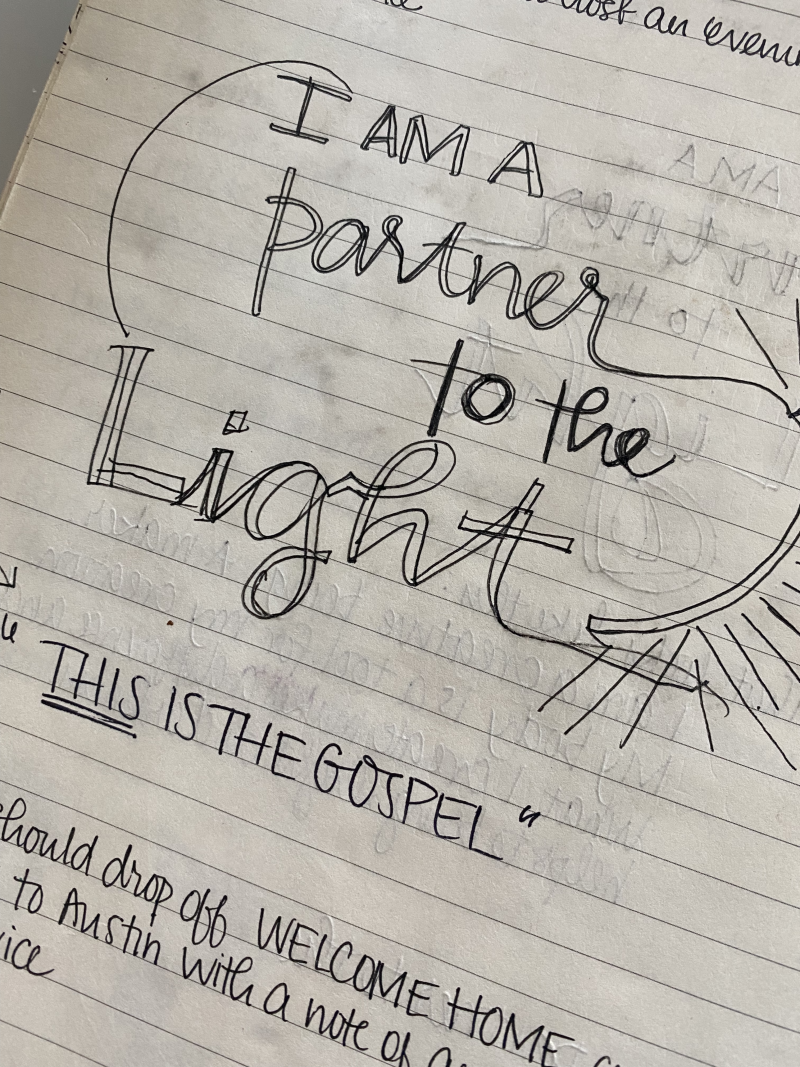 host an
I AM A
partner
to the
Light
"THIS IS THE GOSPEL"
should drop off WELCOME HOME
to Austin with a note of